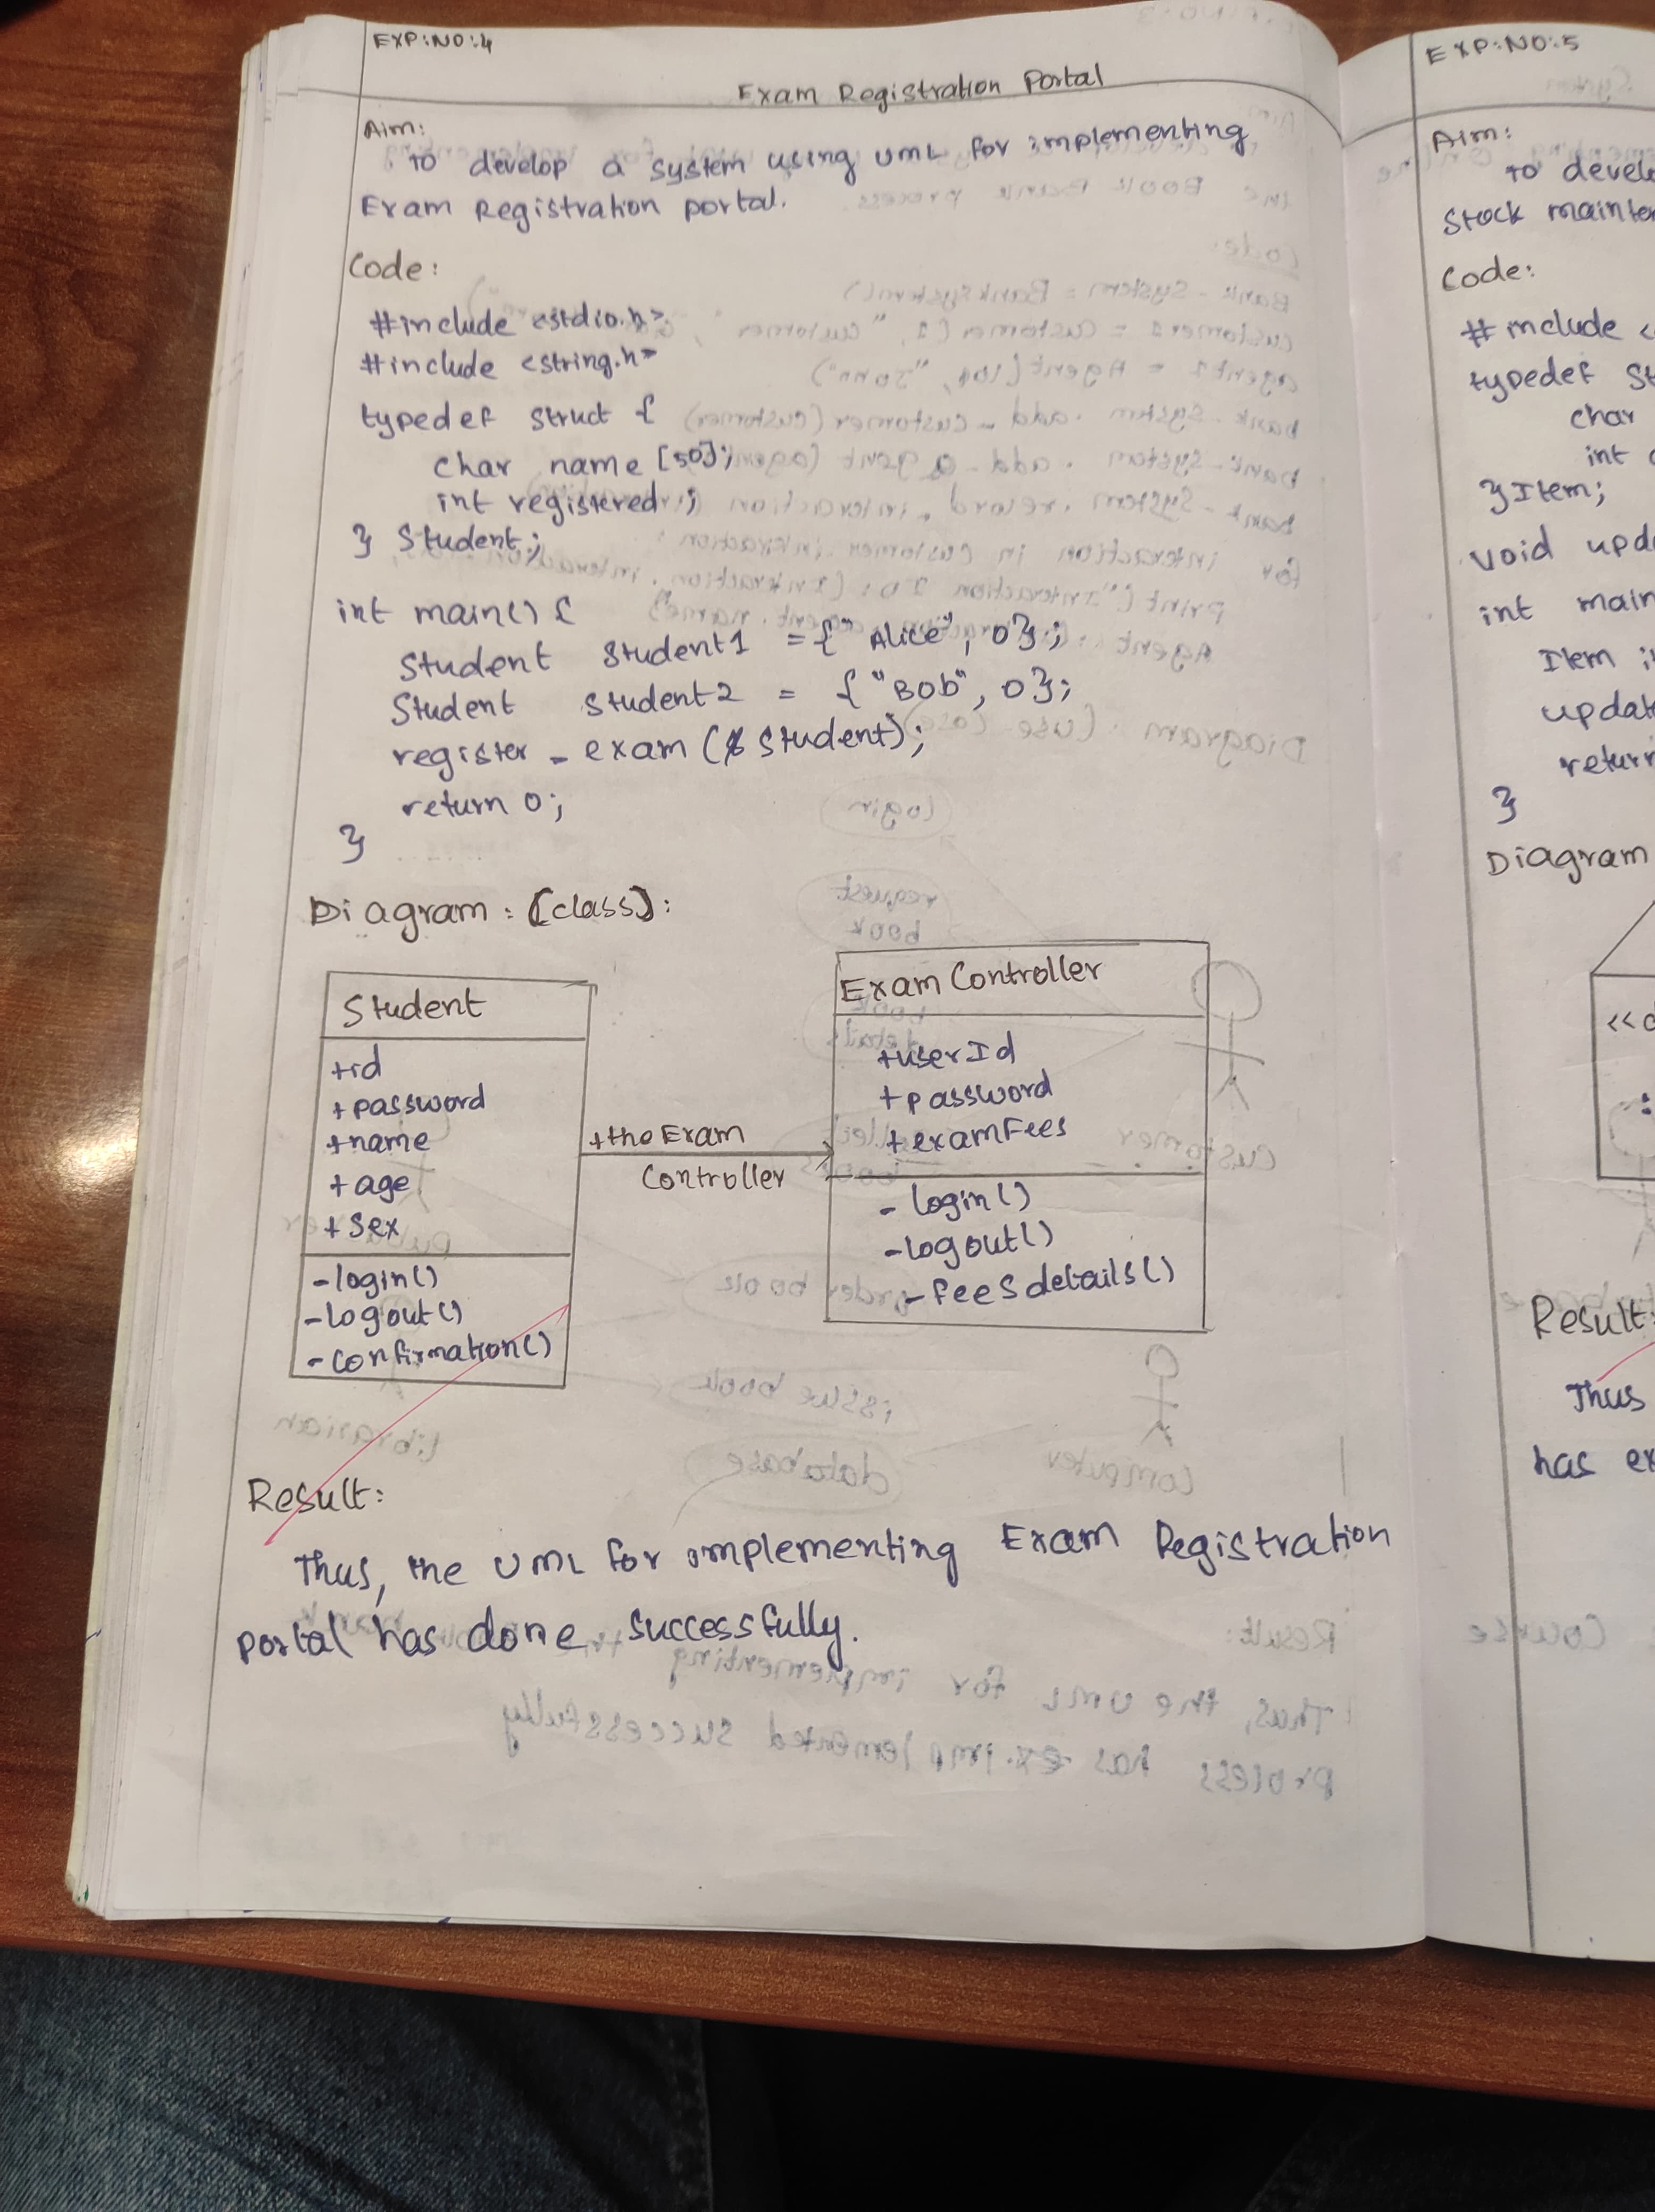 EXP:NO:4
Exam Registration Portal
Aim:
To develop a system using UML for implementing
Exam Registration portal.
Code:
#include <stdio.h>
#include <string.h>
typedef struct {
char name [50];
int registered;
} Student;
int main() {
Student student1 = {"Alice", 0};
Student student2 = {"Bob", 0};
register - exam (& student);
return 0;
}
Diagram: (class):
Student
+id
+password
+name
+age
+sex
-login()
-logout()
-confirmation()
+the Exam
Controller
Exam Controller
+userId
+password
+examFees
- login()
-logout()
- fees details()
Result:
Thus, the UML for implementing Exam Registration
portal has done successfully.
EXP:NO:5
Aim:
To
Stock
Code:
# include
typedef
char
int
} Item;
void
int
Item
return
}
Diagram
Result:
Thus
has